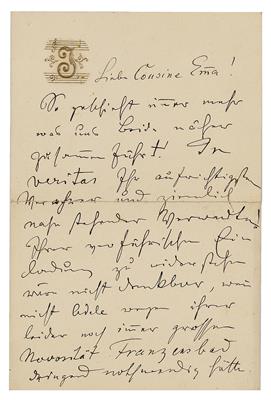 J
Liebe Cousine Ema!
So geschieht immer mehr
was uns beide näher
zusammen führt! In
veritas Ihr aufrichtigster
Verehrer und ziemlich
nahe stehender Verwandter!
Ihrer verführischen Ein
ladung zu widerstehen
wäre nicht denkbar, wenn
nicht Adele wegen ihrer
leider noch immer grossen
Nervosität Franzensbad
dringend nothwendig hätte.